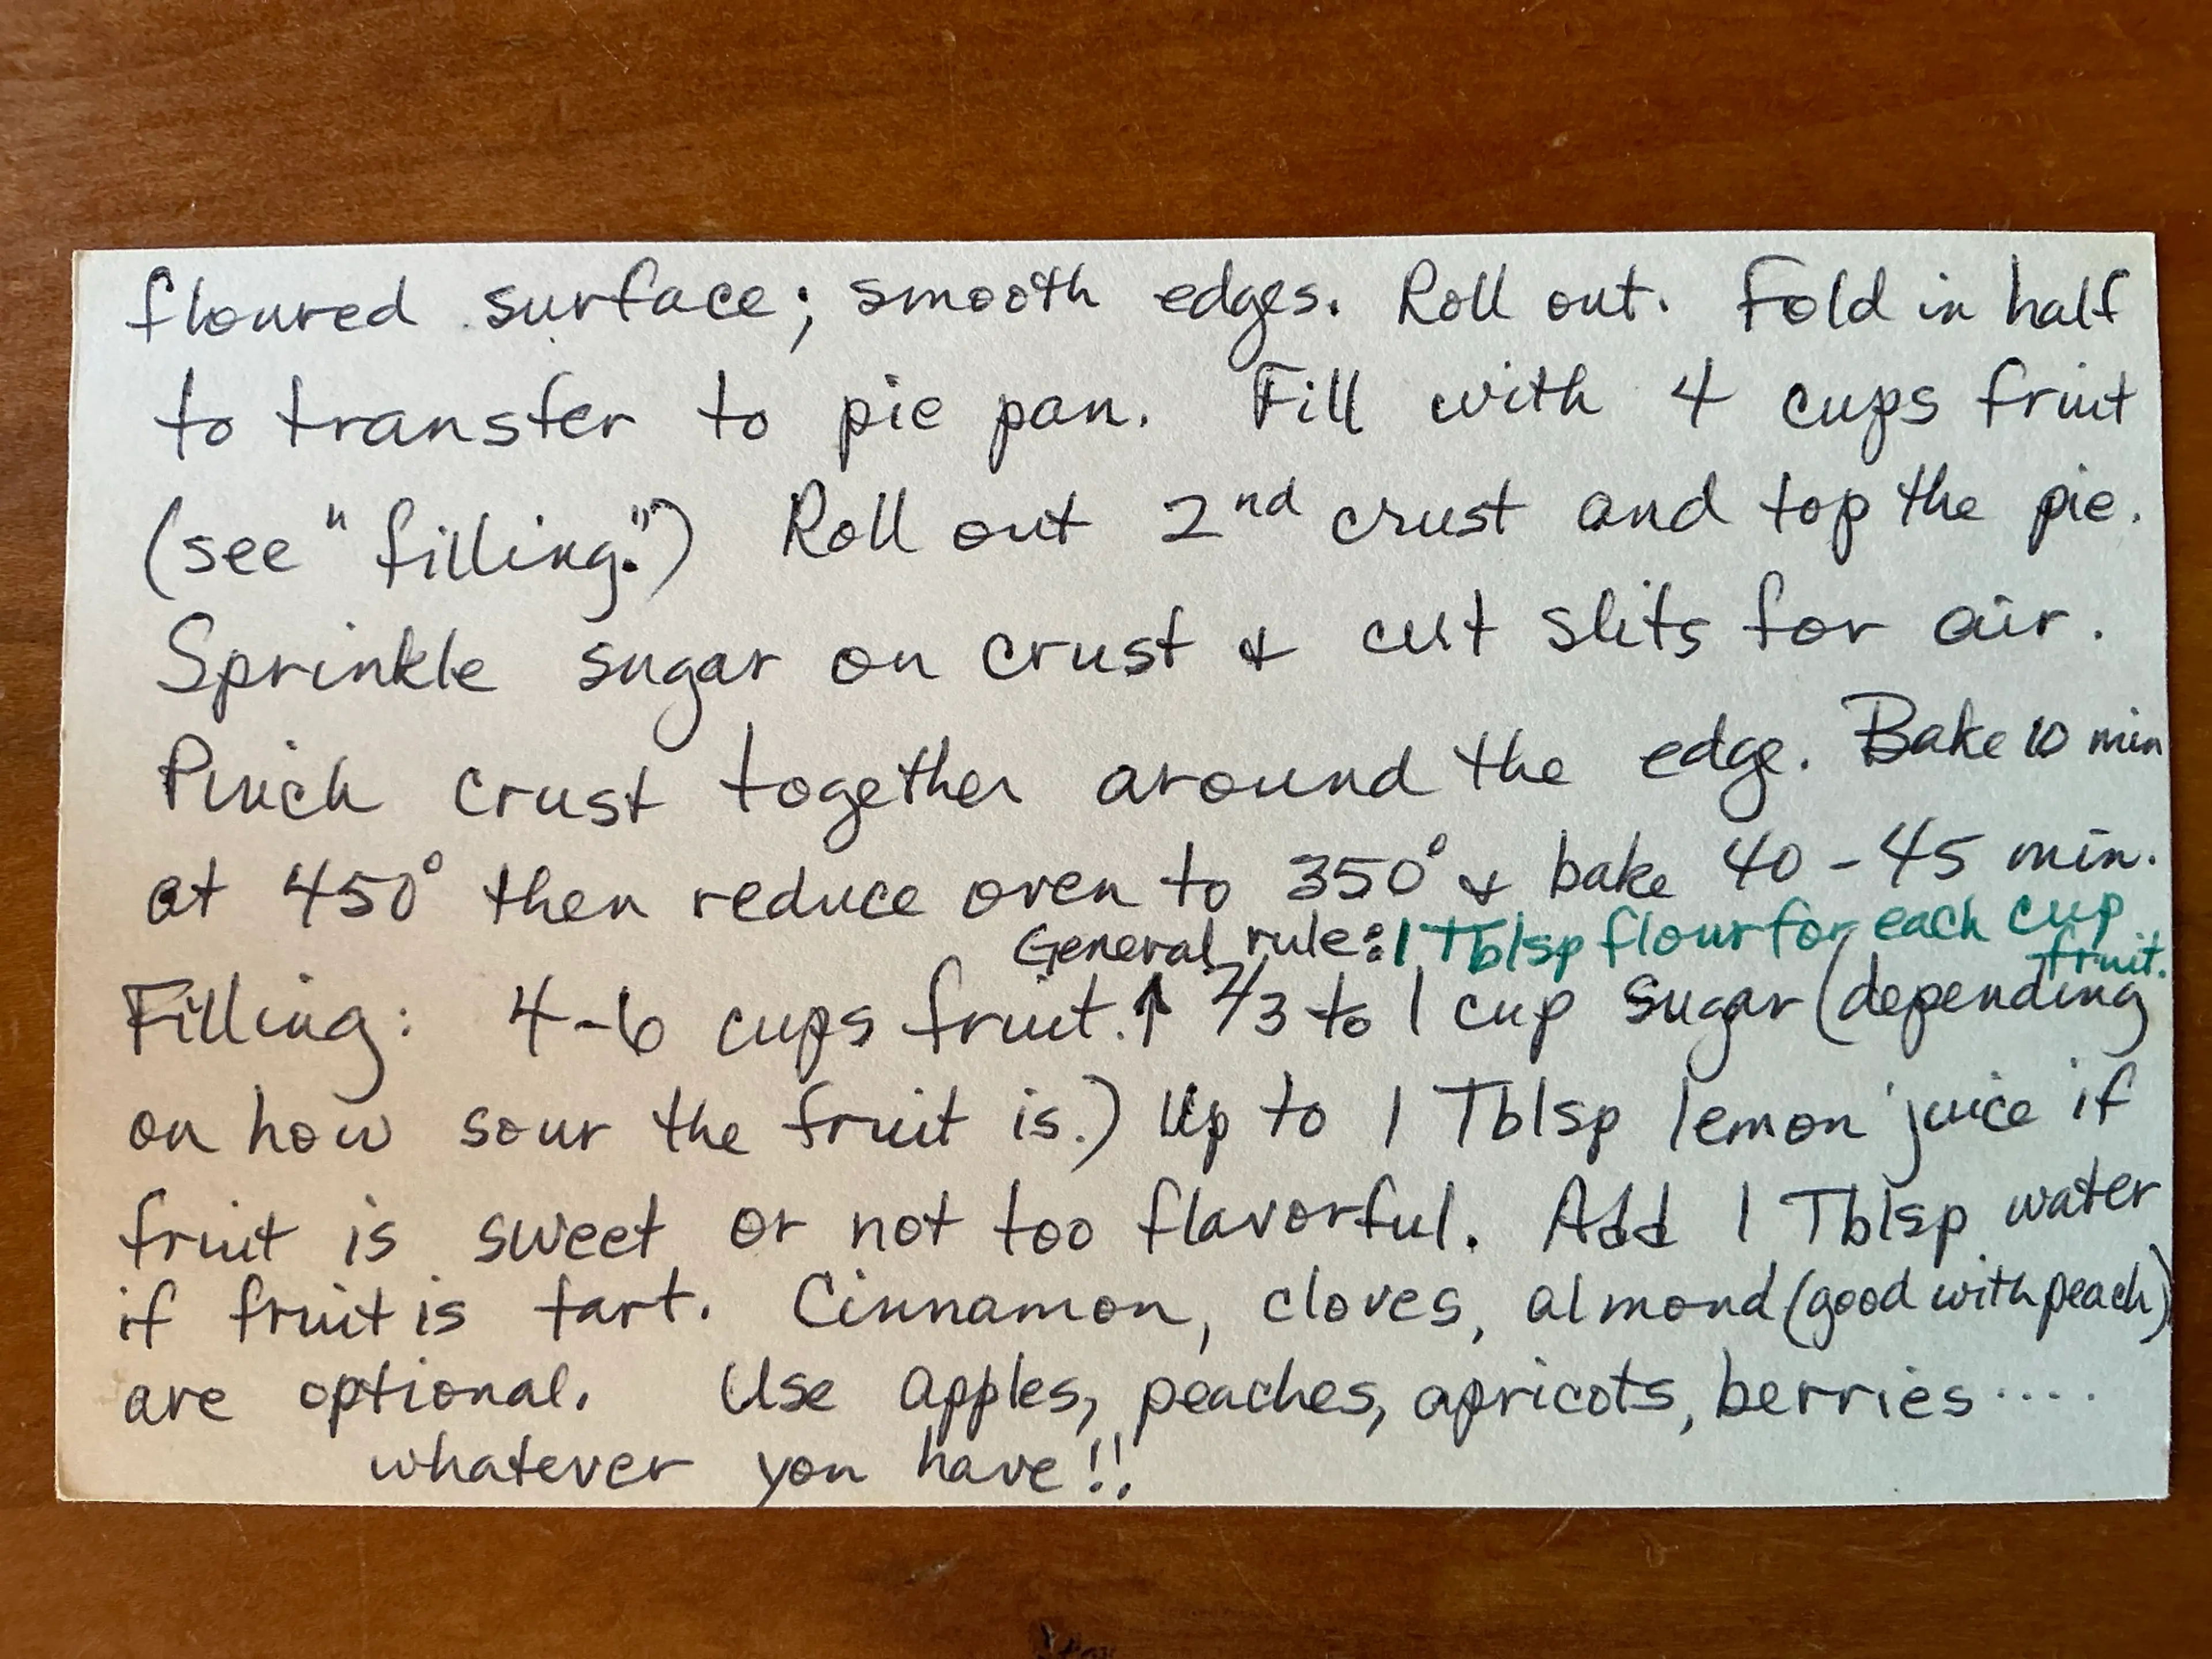 floured surface; smooth edges. Roll out. Fold in half
to transfer to pie pan. Fill with 4 cups fruit
(see "filling.") Roll out 2nd crust and top the pie.
Sprinkle sugar on crust & cut slits for air.
Pinch crust together around the edge. Bake 10 min
at 450° then reduce oven to 350° & bake 40-45 min.
General rule: 1 Tblsp flour for each cup
fruit.
Filling: 4-6 cups fruit.↑ 2/3 to 1 cup sugar (depending
on how sour the fruit is.) Up to 1 Tblsp lemon juice if
fruit is sweet or not too flavorful. Add 1 Tblsp water
if fruit is tart. Cinnamon, cloves, almond (good with peach)
are optional. Use apples, peaches, apricots, berries.....
whatever you have!!